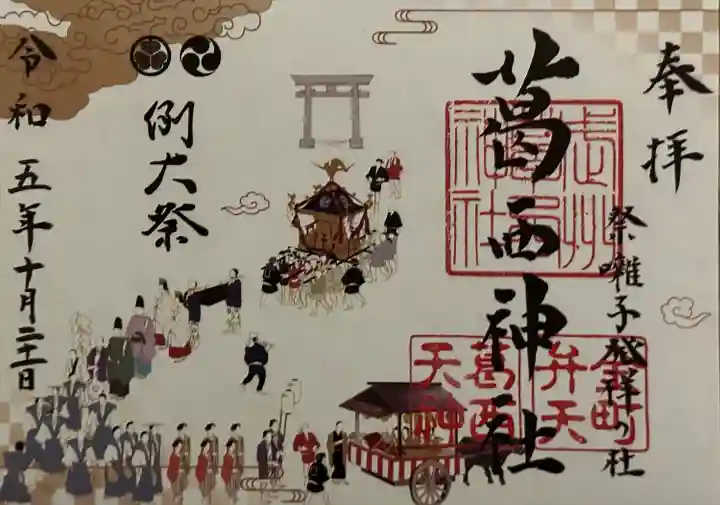 奉拝
祭囃子発祥の社
葛西神社
武州
葛西
神社
金町
弁天
葛西
天神
例大祭
令和五年十月二十一日